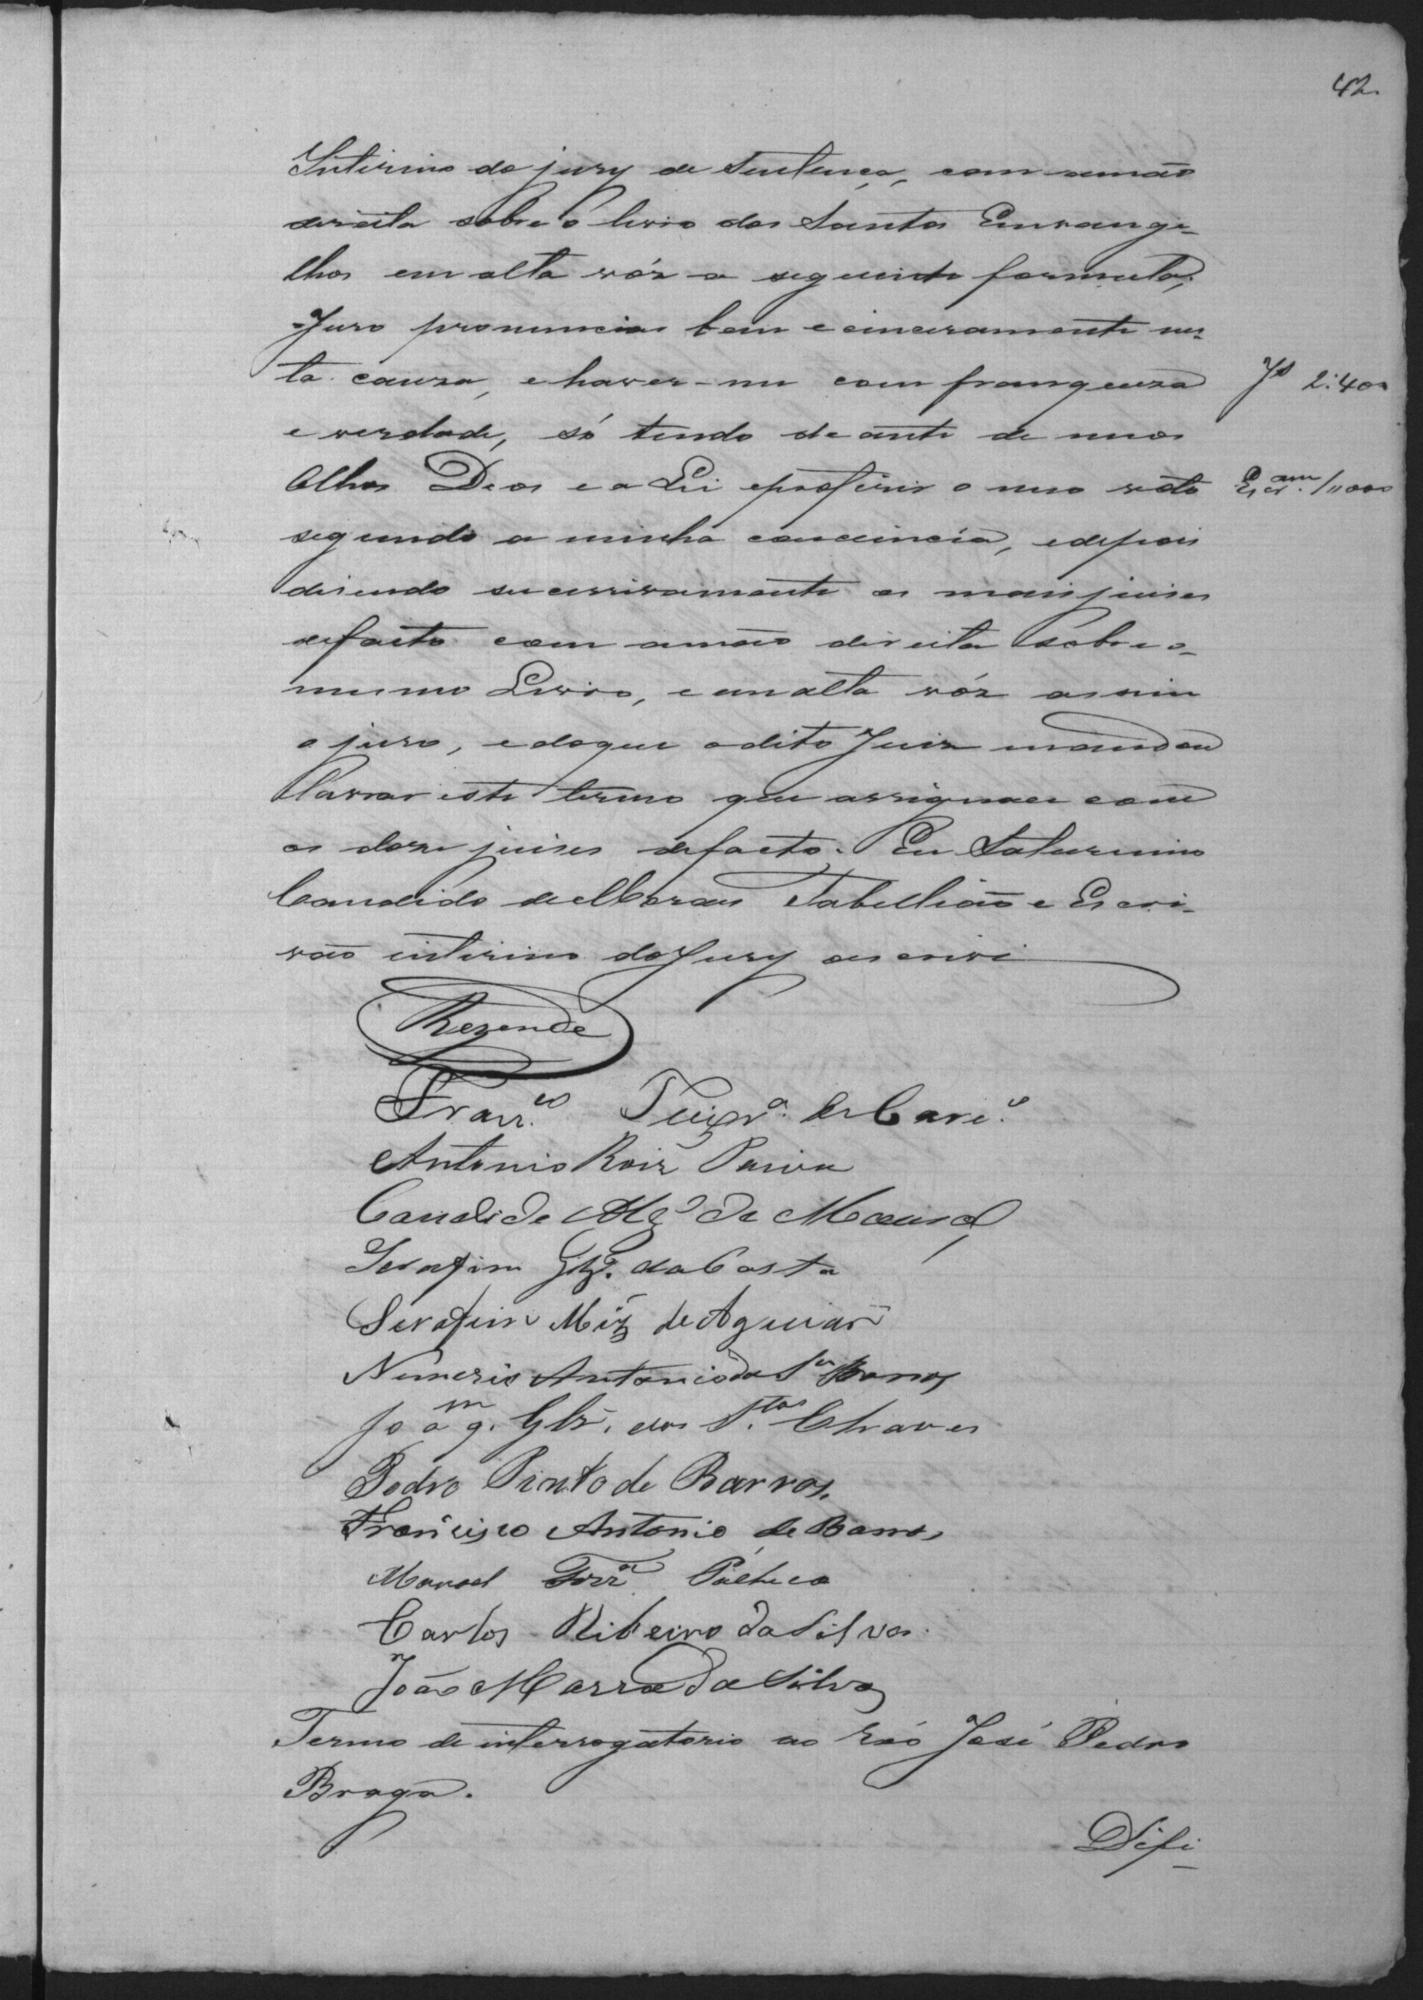 42
Interino do jury de Sentença, com amão
direita sobre o livro dos Santos Envange-
lhos em alta vóz a seguinte formula;
Juro pronunciar bem e cinceramente nes-
ta causa, e haver-me com franqueza
Js 2:400
e verdade, só tendo deante de meus
Olhos Deos e a Lei e proferir o meu voto
segundo a minha conciencia, e depois
disendo sucessivamente os mais juises
defacto com amão direita sobre o
mesmo Livro, e em alta vóz assim
o juro, e doque o dito Juiz mandou
lavrar este termo que assignou com
os doze juises defacto. Eu Saturnino
Candido de Moraes Tabellião e Escri-
vão interino do Jury o escrevi
Rezende
Franco Teixra de
Antonio Roiz Paiva
Candido de
Serafim Glz. da Costa
Serafim Miz de Aguiar
Antonio da Sa Barros
Joaqm. Glz. dos Stos Chaves
Pedro Pinto de Barros.
Francisco Antonio de Barros
Manoel Pacheco
Carlos Ribeiro da Silva.
João Marra da Silva
Termo de interrogatorio ao réo José Pedro
Braga.
Difi-